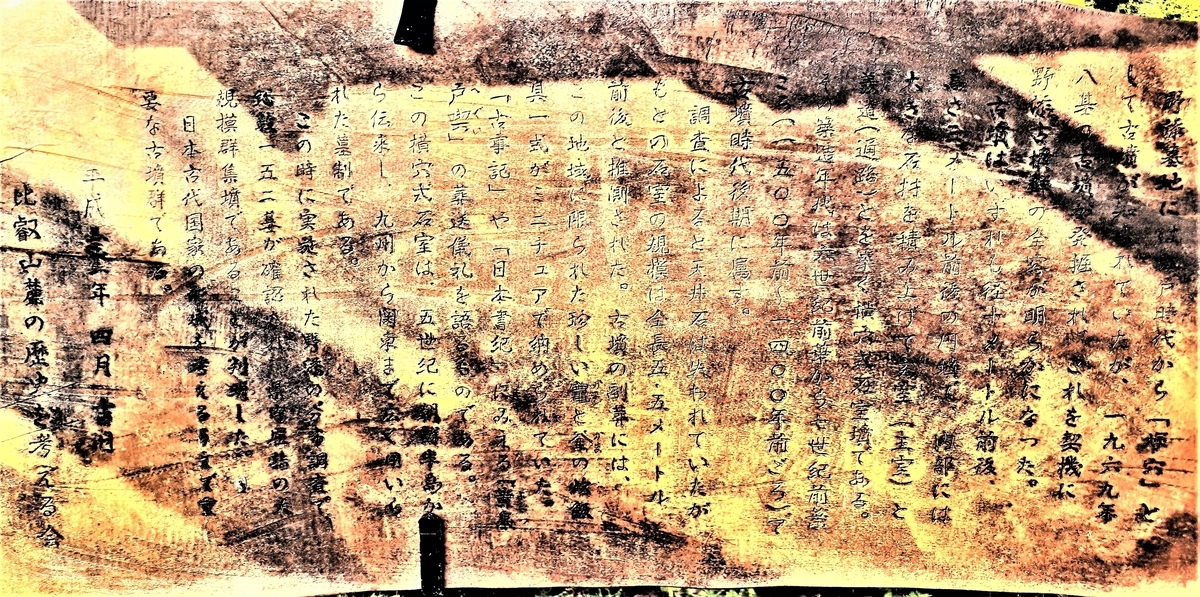 野添墓地には、江戸時代から「塚穴」と
して古墳が知られていたが、一九六九年
八基の古墳が発掘され、これを契機に
野添古墳群の全容が明らかになった。
古墳はいずれも径十メートル前後、
高さ三メートル前後の円墳で、内部には
大きな石材を積み上げて石室(主室)と
羨道(通路)とを築く横穴式石室墳である。
築造年代は六世紀前半から七世紀前半
(一五〇〇年前~一四〇〇年前ごろ)で
古墳時代後期に属す。
調査によると天井石は失われていたが
もとの石室の規模は全長五・五メートル
前後と推測された。古墳の副葬には、
この地域に限られた珍しい竈と釜の炊飯
具一式がミニチュアで納められていた。
「古事記」や「日本書紀」にみえる「黄泉
戸喫」の葬送儀礼を語るものである。
へぐい
この横穴式石室は、五世紀に朝鮮半島か
ら伝来し、九州から関東まで広く用いら
れた墓制である。
この時に実施された野添の分布調査で
総数一五二基が確認され、
規模群集墳であることが判明した。
日本古代国家の形成を考えるうえで重
要な古墳群である。
平成 年 四月 吉日
比叡山麓の歴史を考える会